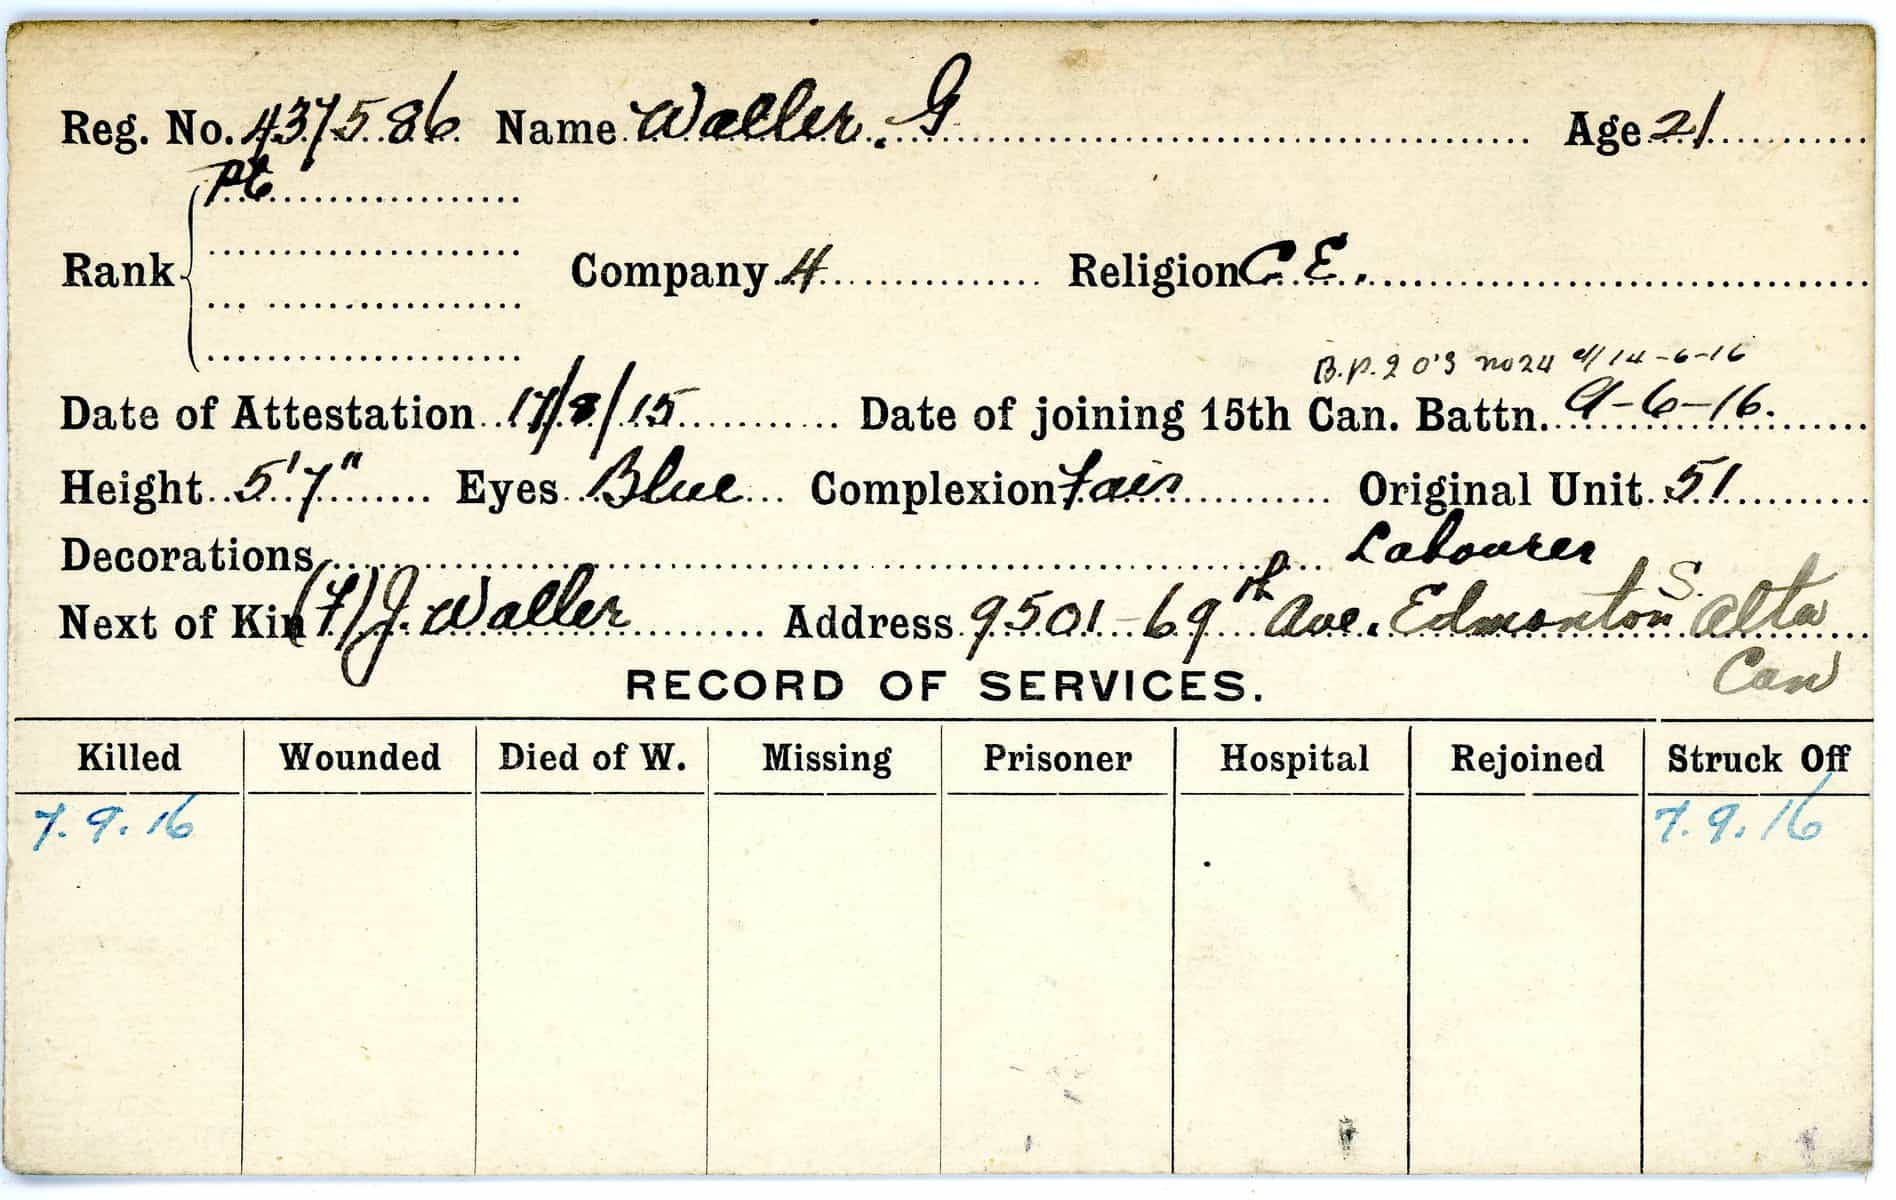 Reg. No. 437586 Name Waller. G Age 21
Pte
Rank Company 4 Religion C. E.
B.P.2 O's no 24 d/14-6-16
Date of Attestation 17/8/15 Date of joining 15th Can. Battn. 9-6-16.
Height 5'7" Eyes Blue Complexion Fair Original Unit 51
Decorations Labourer
Next of Kin (F) J. Waller Address 9501-69th Ave. Edmonton S. Alta
Can
RECORD OF SERVICES.
Killed Wounded Died of W. Missing Prisoner Hospital Rejoined Struck Off
7.9.16 7.9.16